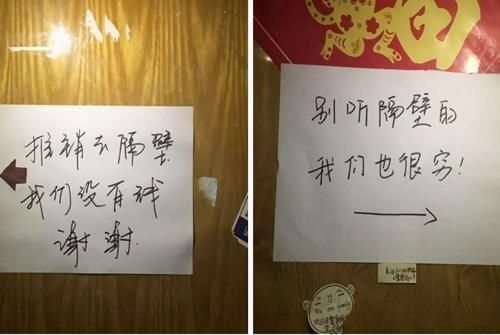 推销去隔壁.
我们没有钱
谢谢.
别听隔壁的
我们也很穷!
We are family